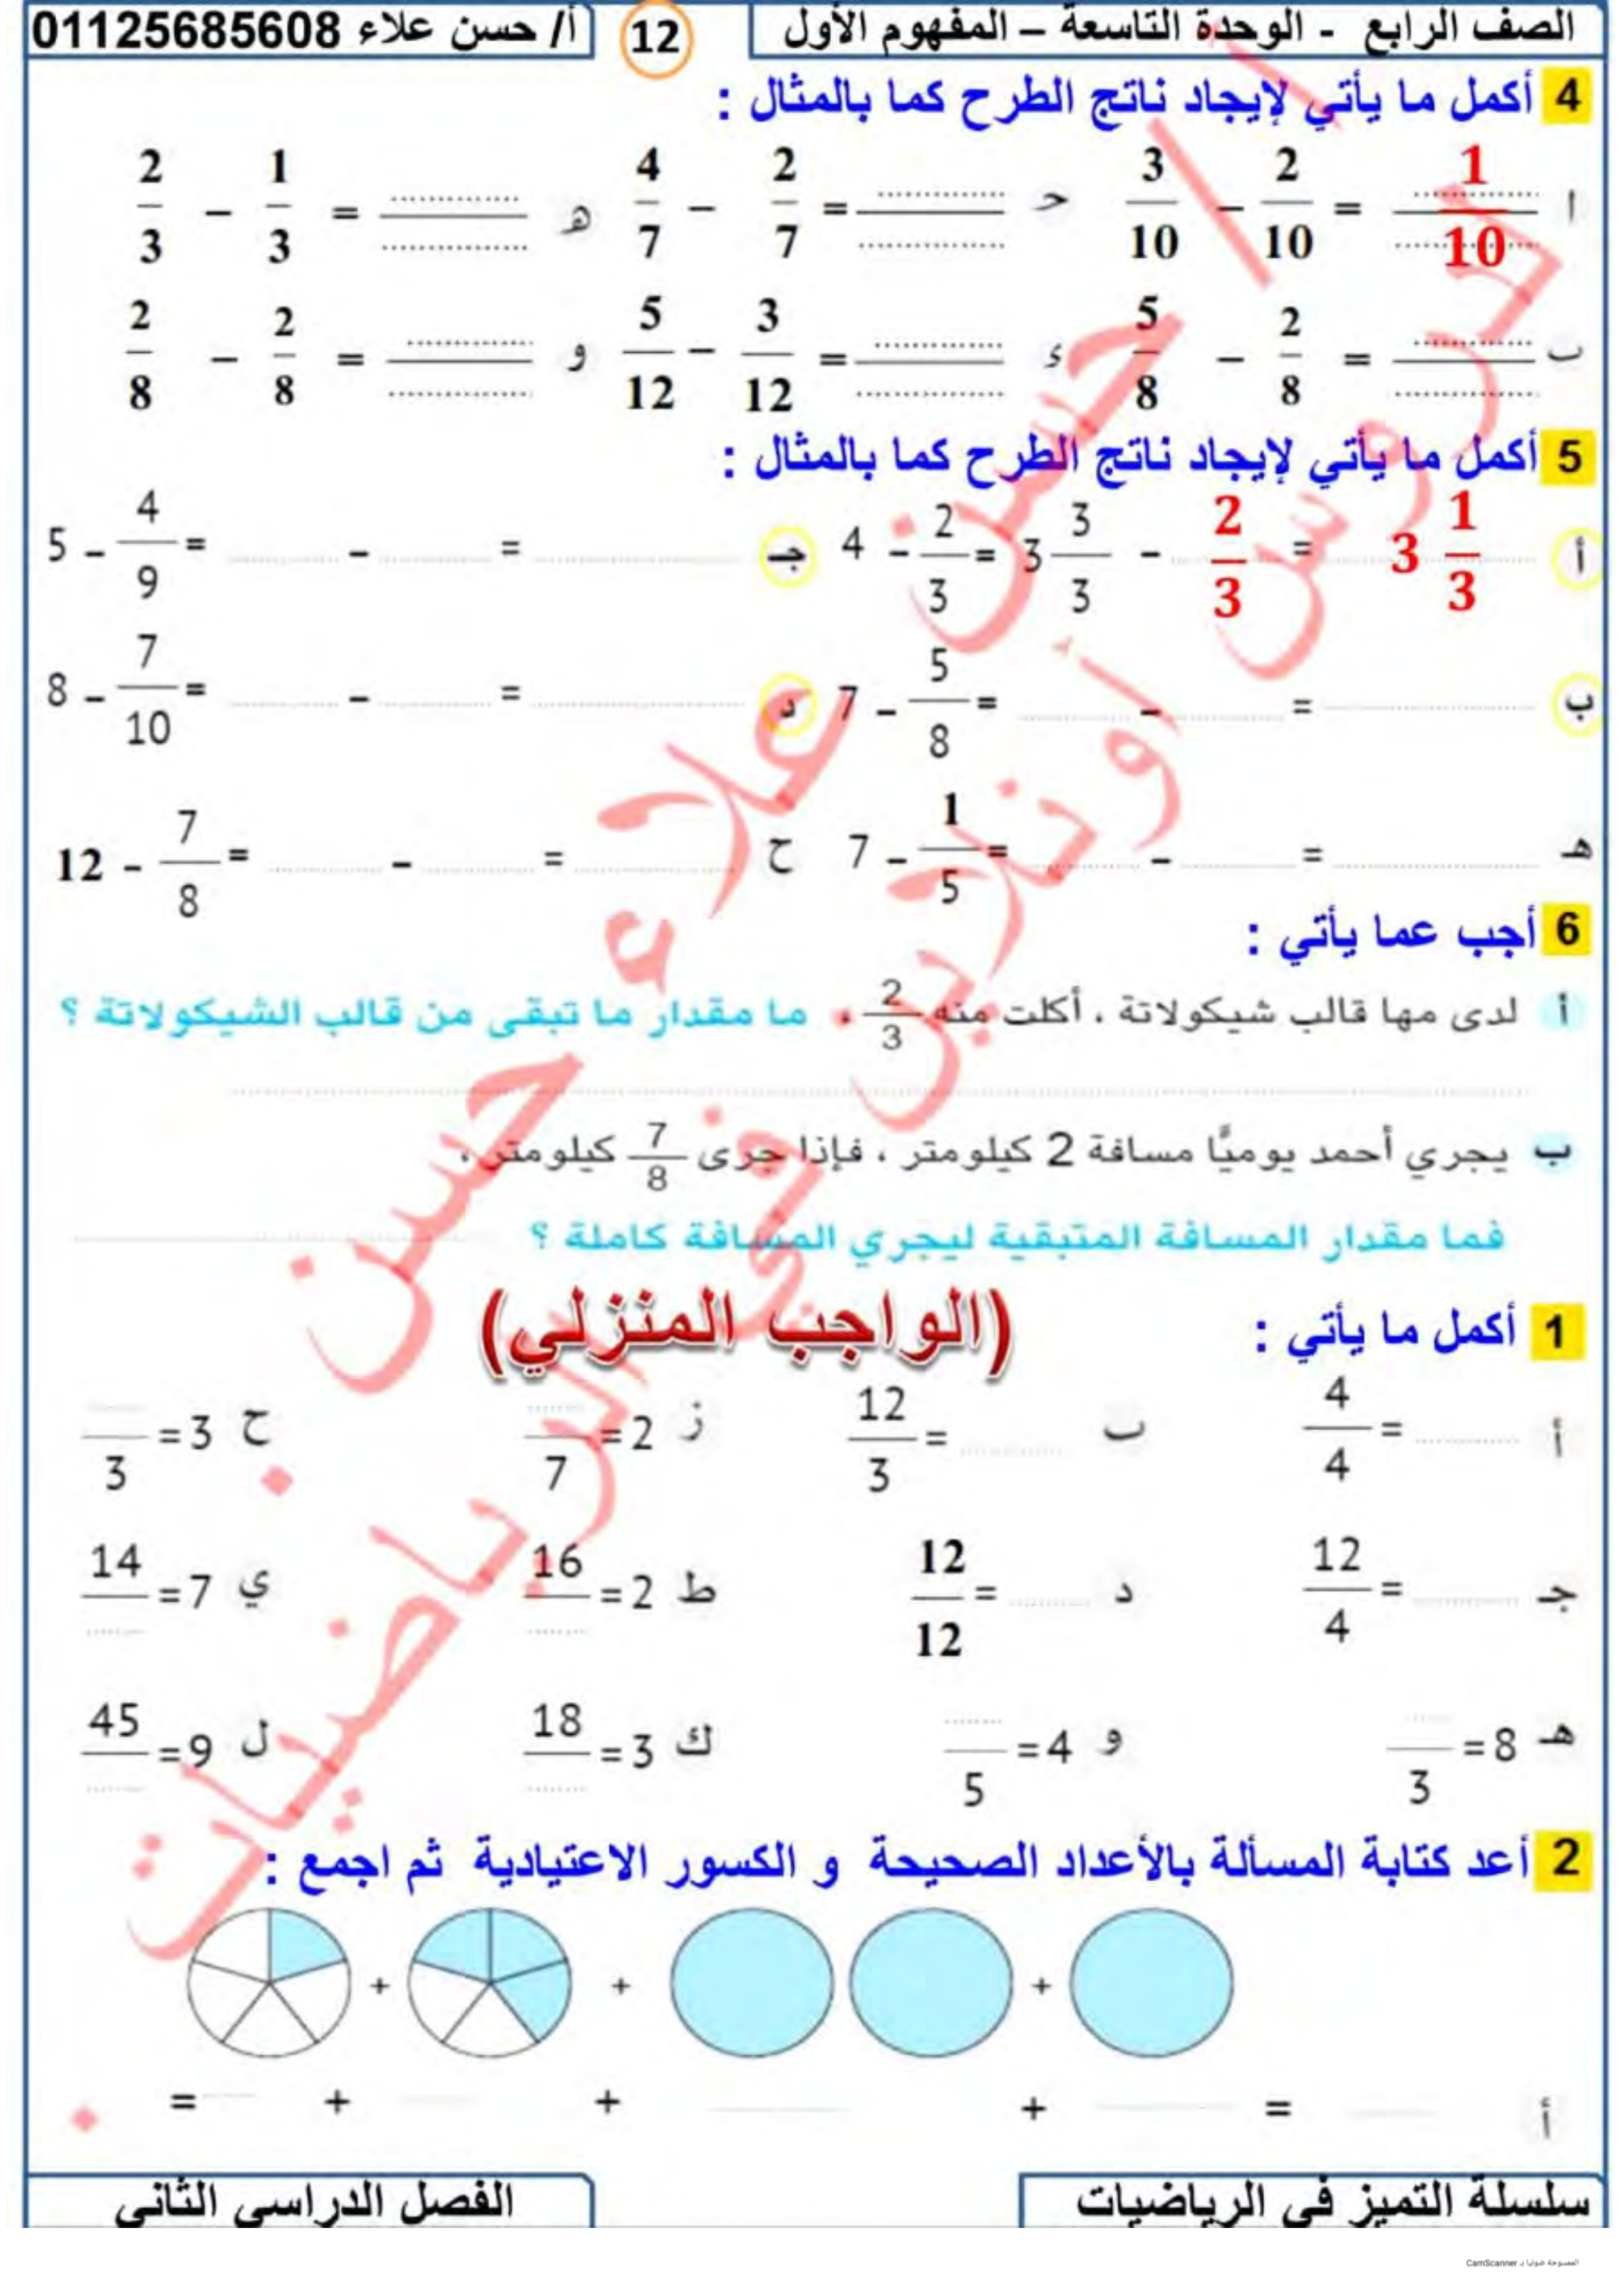 الصف الرابع - الوحدة التاسعة – المفهوم الأول 12 أ/ حسن علاء 01125685608
4 أكمل ما يأتي لإيجاد ناتج الطرح كما بالمثال :
ا 3/10 – 2/10 = 1/10 حـ 4/7 – 2/7 = ........ هـ 2/3 – 1/3 = ........
ب 5/8 – 2/8 = ........ ء 5/12 – 3/12 = ........ و 2/8 – 2/8 = ........
5 أكمل ما يأتي لإيجاد ناتج الطرح كما بالمثال :
أ 4 – 2/3 = 3 3/3 – 2/3 = 3 1/3 جـ 5 – 4/9 = ........ – ........ = ........
ب 7 – 5/8 = ........ – ........ = ........ د 8 – 7/10 = ........ – ........ = ........
هـ 7 – 1/5 = ........ – ........ = ........ ح 12 – 7/8 = ........ – ........ = ........
6 أجب عما يأتي :
أ لدى مها قالب شيكولاتة ، أكلت منه 2/3 ، ما مقدار ما تبقى من قالب الشيكولاتة ؟
ب يجري أحمد يوميًّا مسافة 2 كيلومتر ، فإذا جرى 7/8 كيلومتر ،
فما مقدار المسافة المتبقية ليجري المسافة كاملة ؟
(الواجب المنزلي)
1 أكمل ما يأتي :
أ 4/4 = ........ ب 12/3 = ........ ز ..../7 = 2 ح ..../3 = 3
جـ 12/4 = ........ د 12/12 = ........ ط 16/.... = 2 ي 14/.... = 7
هـ ..../3 = 8 و ..../5 = 4 ك 18/.... = 3 ل 45/.... = 9
2 أعد كتابة المسألة بالأعداد الصحيحة و الكسور الاعتيادية ثم اجمع :
+ + +
أ = ........ + ........ + ........ + ........ = ........
سلسلة التميز في الرياضيات الفصل الدراسي الثاني
أ / حسن علاء حسن
دروس أونلاين في الرياضيات
الممسوحة ضوئيا بـ CamScanner